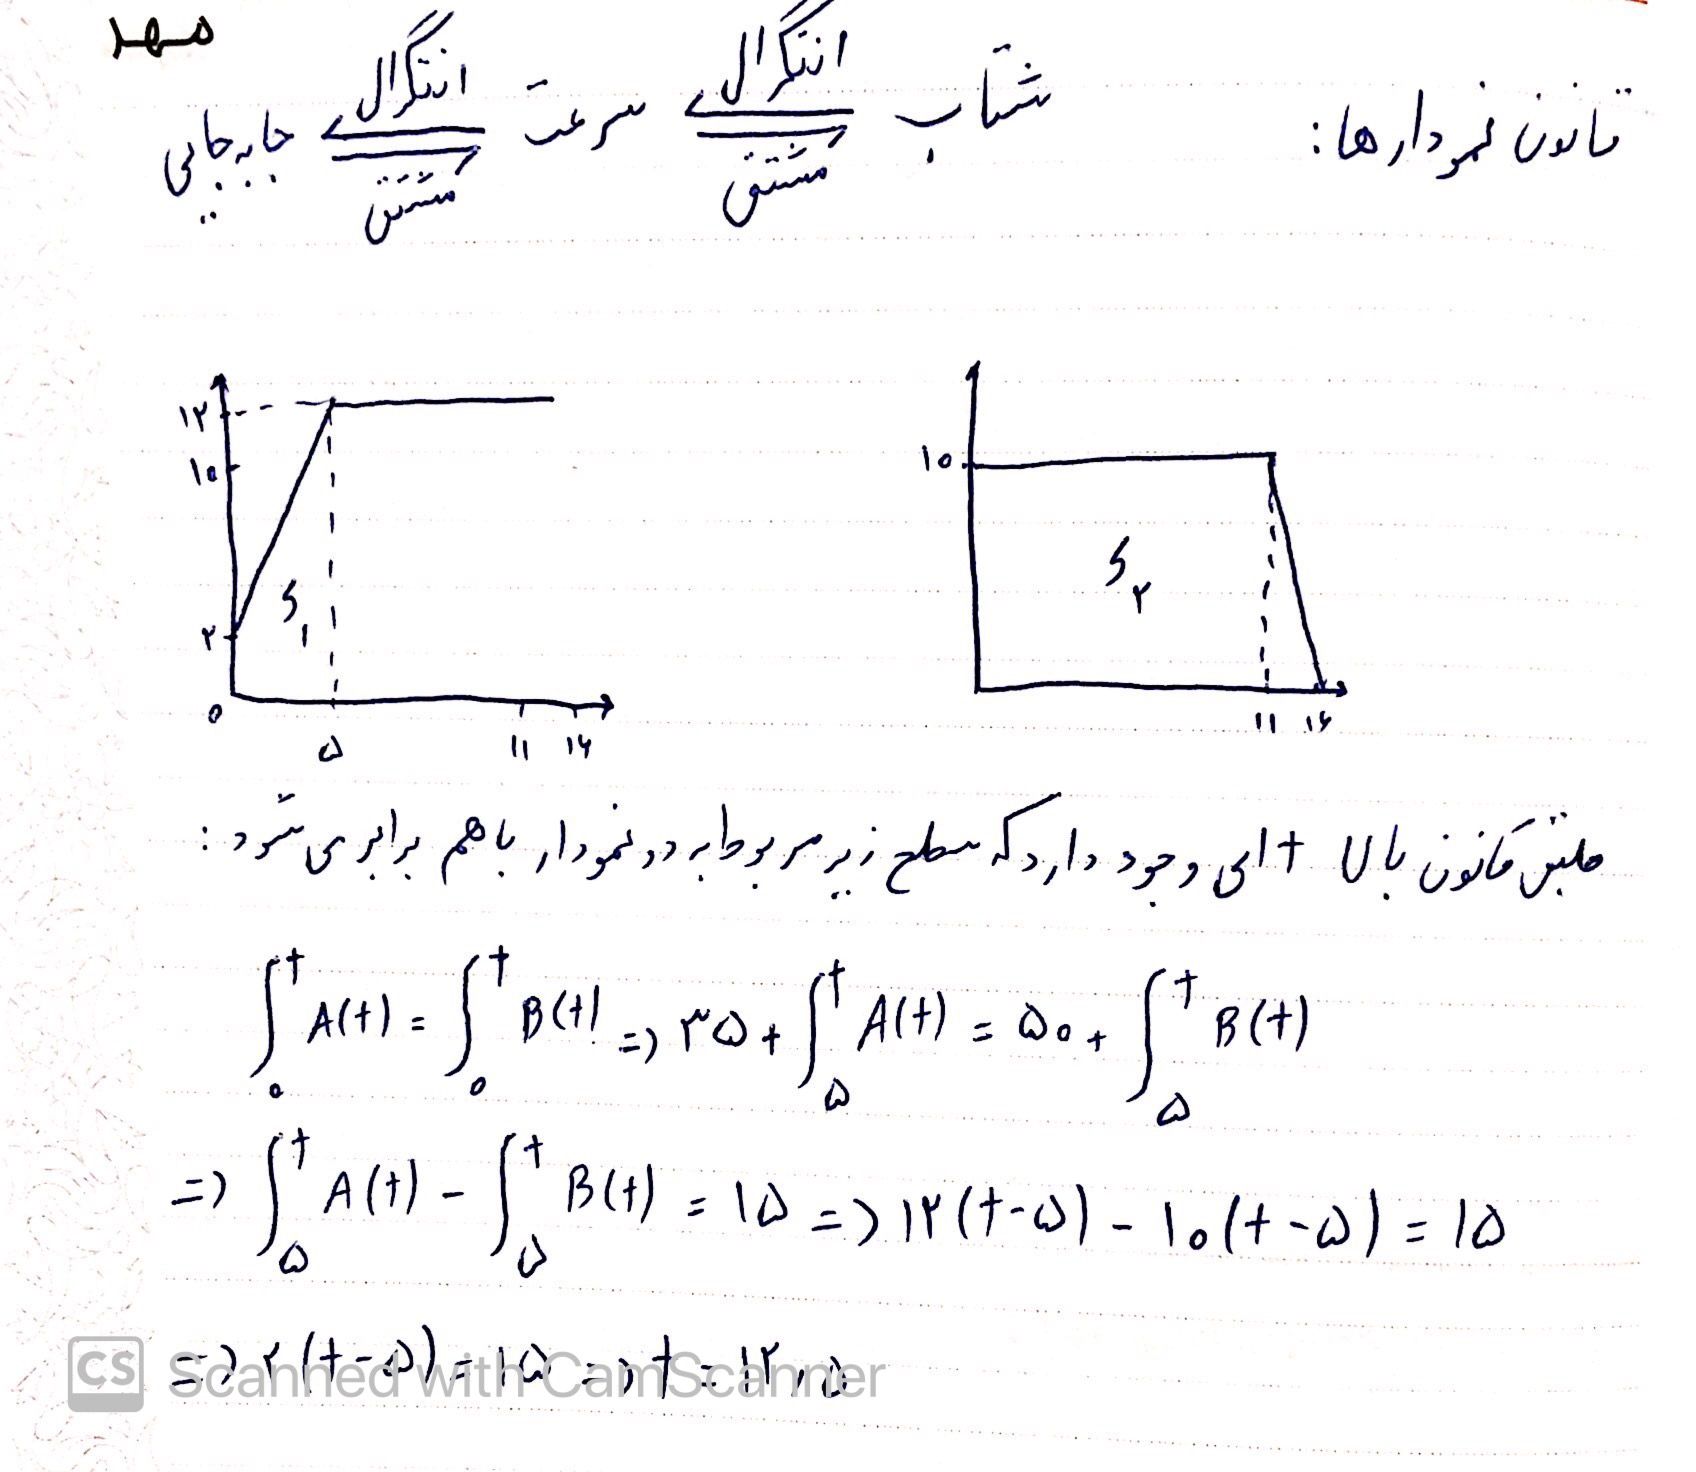 مهد
قانون نمودارها: شتاب انتگرال مشتق سرعت انتگرال مشتق جابه‌جایی
۱۲
۱۰
۲
S۱
۰ ۵ ۱۱ ۱۶
۱۰
S۲
۱۱ ۱۶
طبق قانون بالا t ای وجود دارد که سطح زیر مربوط به دو نمودار با هم برابر می شود:
∫₀ᵗ A(t) = ∫₀ᵗ B(t) => ۳۵ + ∫₅ᵗ A(t) = ۵۰ + ∫₅ᵗ B(t)
=> ∫₅ᵗ A(t) - ∫₅ᵗ B(t) = ۱۵ => ۱۲(t-۵) - ۱۰(t-۵) = ۱۵
=> ۲(t-۵) = ۱۵ => t = ۱۲,۵
CS Scanned with CamScanner